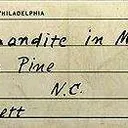 PHILADELPHIA
andite in M
Pine
N.C.
ett